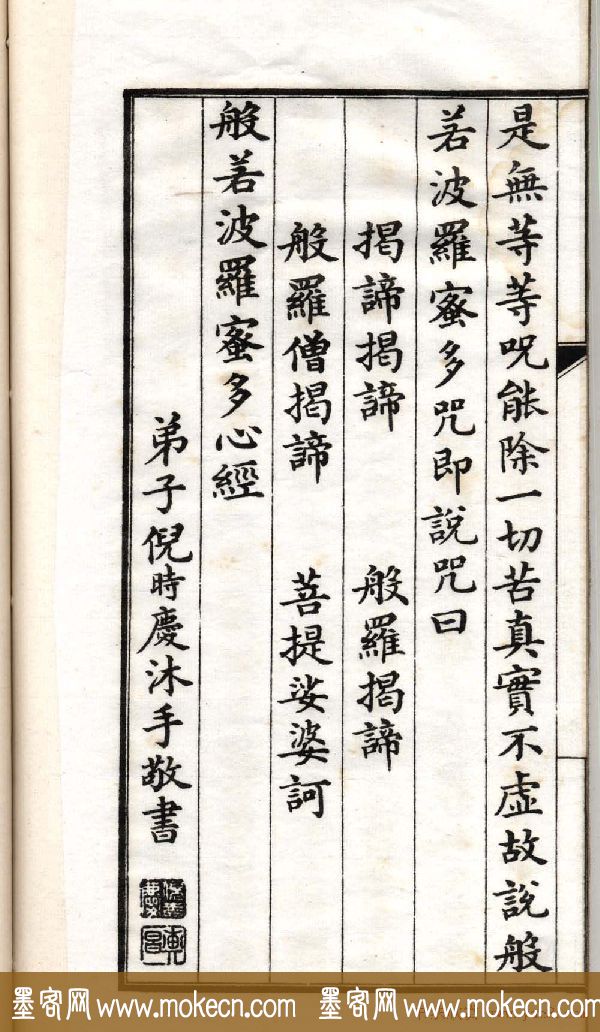 是無等等咒能除一切苦真實不虛故說般
若波羅蜜多咒即說咒曰
揭諦揭諦 般羅揭諦
般羅僧揭諦 菩提娑婆訶
般若波羅蜜多心經
弟子倪時慶沐手敬書
墨客网 www.mokecn.com 墨客网 www.mokecn.com